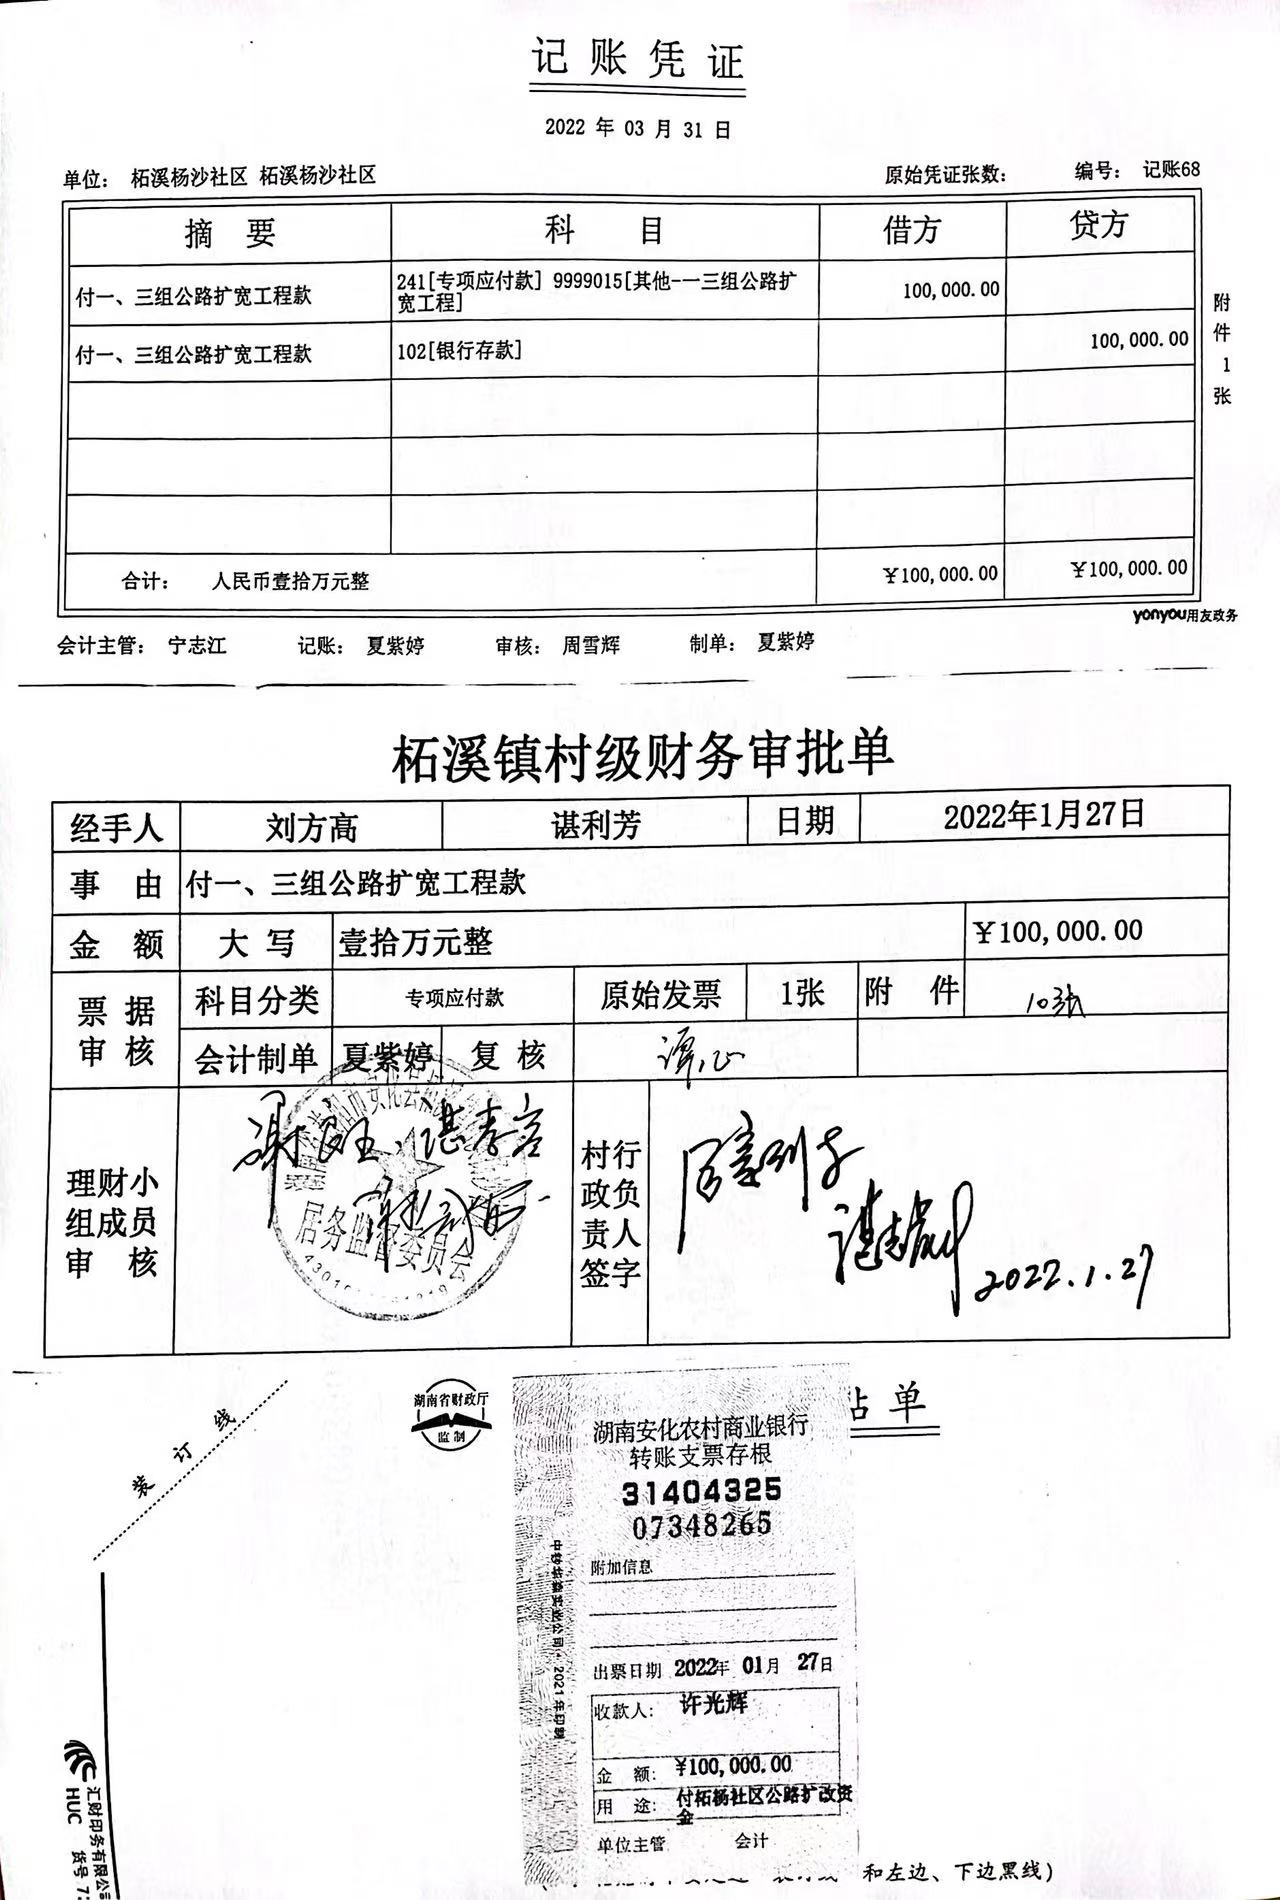 记账凭证
2022 年 03 月 31 日
单位： 柘溪杨沙社区 柘溪杨沙社区 原始凭证张数： 编号： 记账68
摘 要 科 目 借方 贷方
付一、三组公路扩宽工程款 241[专项应付款] 9999015[其他-一三组公路扩宽工程] 100,000.00
付一、三组公路扩宽工程款 102[银行存款] 100,000.00
附件 1 张
合计： 人民币壹拾万元整 ¥100,000.00 ¥100,000.00
yonyou用友政务
会计主管： 宁志江 记账： 夏紫婷 审核： 周雪辉 制单： 夏紫婷
柘溪镇村级财务审批单
经手人 刘方高 谌利芳 日期 2022年1月27日
事 由 付一、三组公路扩宽工程款
金 额 大 写 壹拾万元整 ¥100,000.00
票 据 审 核 科目分类 专项应付款 原始发票 1张 附 件 10张
会计制单 夏紫婷 复 核
理财小组成员审 核 村行政负责人签字
居务监督委员会
2022.1.27
装 订 线
湖南省财政厅
监制
粘 单
湖南安化农村商业银行
转账支票存根
31404325
07348265
附加信息
出票日期 2022年 01月 27日
收款人： 许光辉
金 额： ¥100,000.00
用 途： 付柘杨社区公路扩改资金
单位主管 会计
2021年印制
汇财印务有限公司
HUC 货号 7:
和左边、下边黑线)